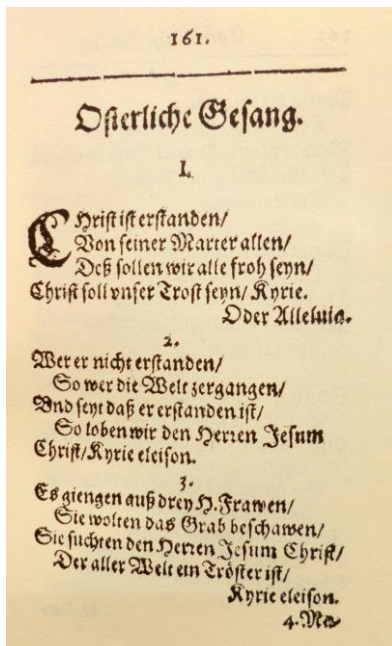 161.
Osterliche Gesang.
I.
CHrist ist erstanden/
Von seiner Marter allen/
Deß sollen wir alle froh seyn/
Christ soll vnser Trost seyn/ Kyrie.
Oder Alleluia.
2.
Wer er nicht erstanden/
So wer die Welt zergangen/
Vnd seyt daß er erstanden ist/
So loben wir den Herren Jesum
Christ/ Kyrie eleison.
3.
Es giengen auß drey H. Frawen/
Sie wolten das Grab beschawen/
Sie suchten den Herren Jesum Christ/
Der aller Welt ein Tröster ist/
Kyrie eleison.
4. Ma